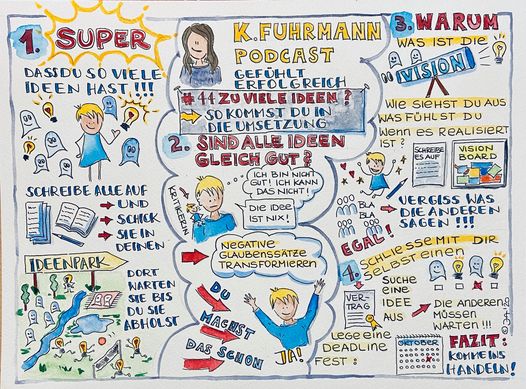 1. SUPER
DASS DU SO VIELE
IDEEN HAST!!!
SCHREIBE ALLE AUF
UND
SCHICK
SIE IN
DEINEN
IDEENPARK
DORT
WARTEN
SIE BIS
DU SIE
ABHOLST
K. FUHRMANN
PODCAST
GEFÜHLT
ERFOLGREICH
#44 ZU VIELE IDEEN?
SO KOMMST DU IN
DIE UMSETZUNG
2. SIND ALLE IDEEN
GLEICH GUT?
ICH BIN NICHT
GUT! ICH KANN
DAS NICHT!
KRITIKERIN
DIE IDEE
IST NIX!
NEGATIVE
GLAUBENSSÄTZE
TRANSFORMIEREN
DU
MACHST
DAS SCHON
JA!
3. WARUM
WAS IST DIE
VISION
WIE SIEHST DU AUS
WAS FÜHLST DU
WENN ES REALISIERT
IST?
SCHREIBE
ES AUF
VISION
BOARD
BLA
BLA
EGAL!
VERGISS WAS
DIE ANDEREN
SAGEN!!!
4. SCHLIESSE MIT DIR
SELBST EINEN
VERTRAG
SUCHE
EINE
IDEE
AUS
DIE ANDEREN
MÜSSEN
WARTEN!!!
LEGE EINE
DEADLINE
FEST:
OKTOBER
FAZIT:
KOMME INS
HANDELN!